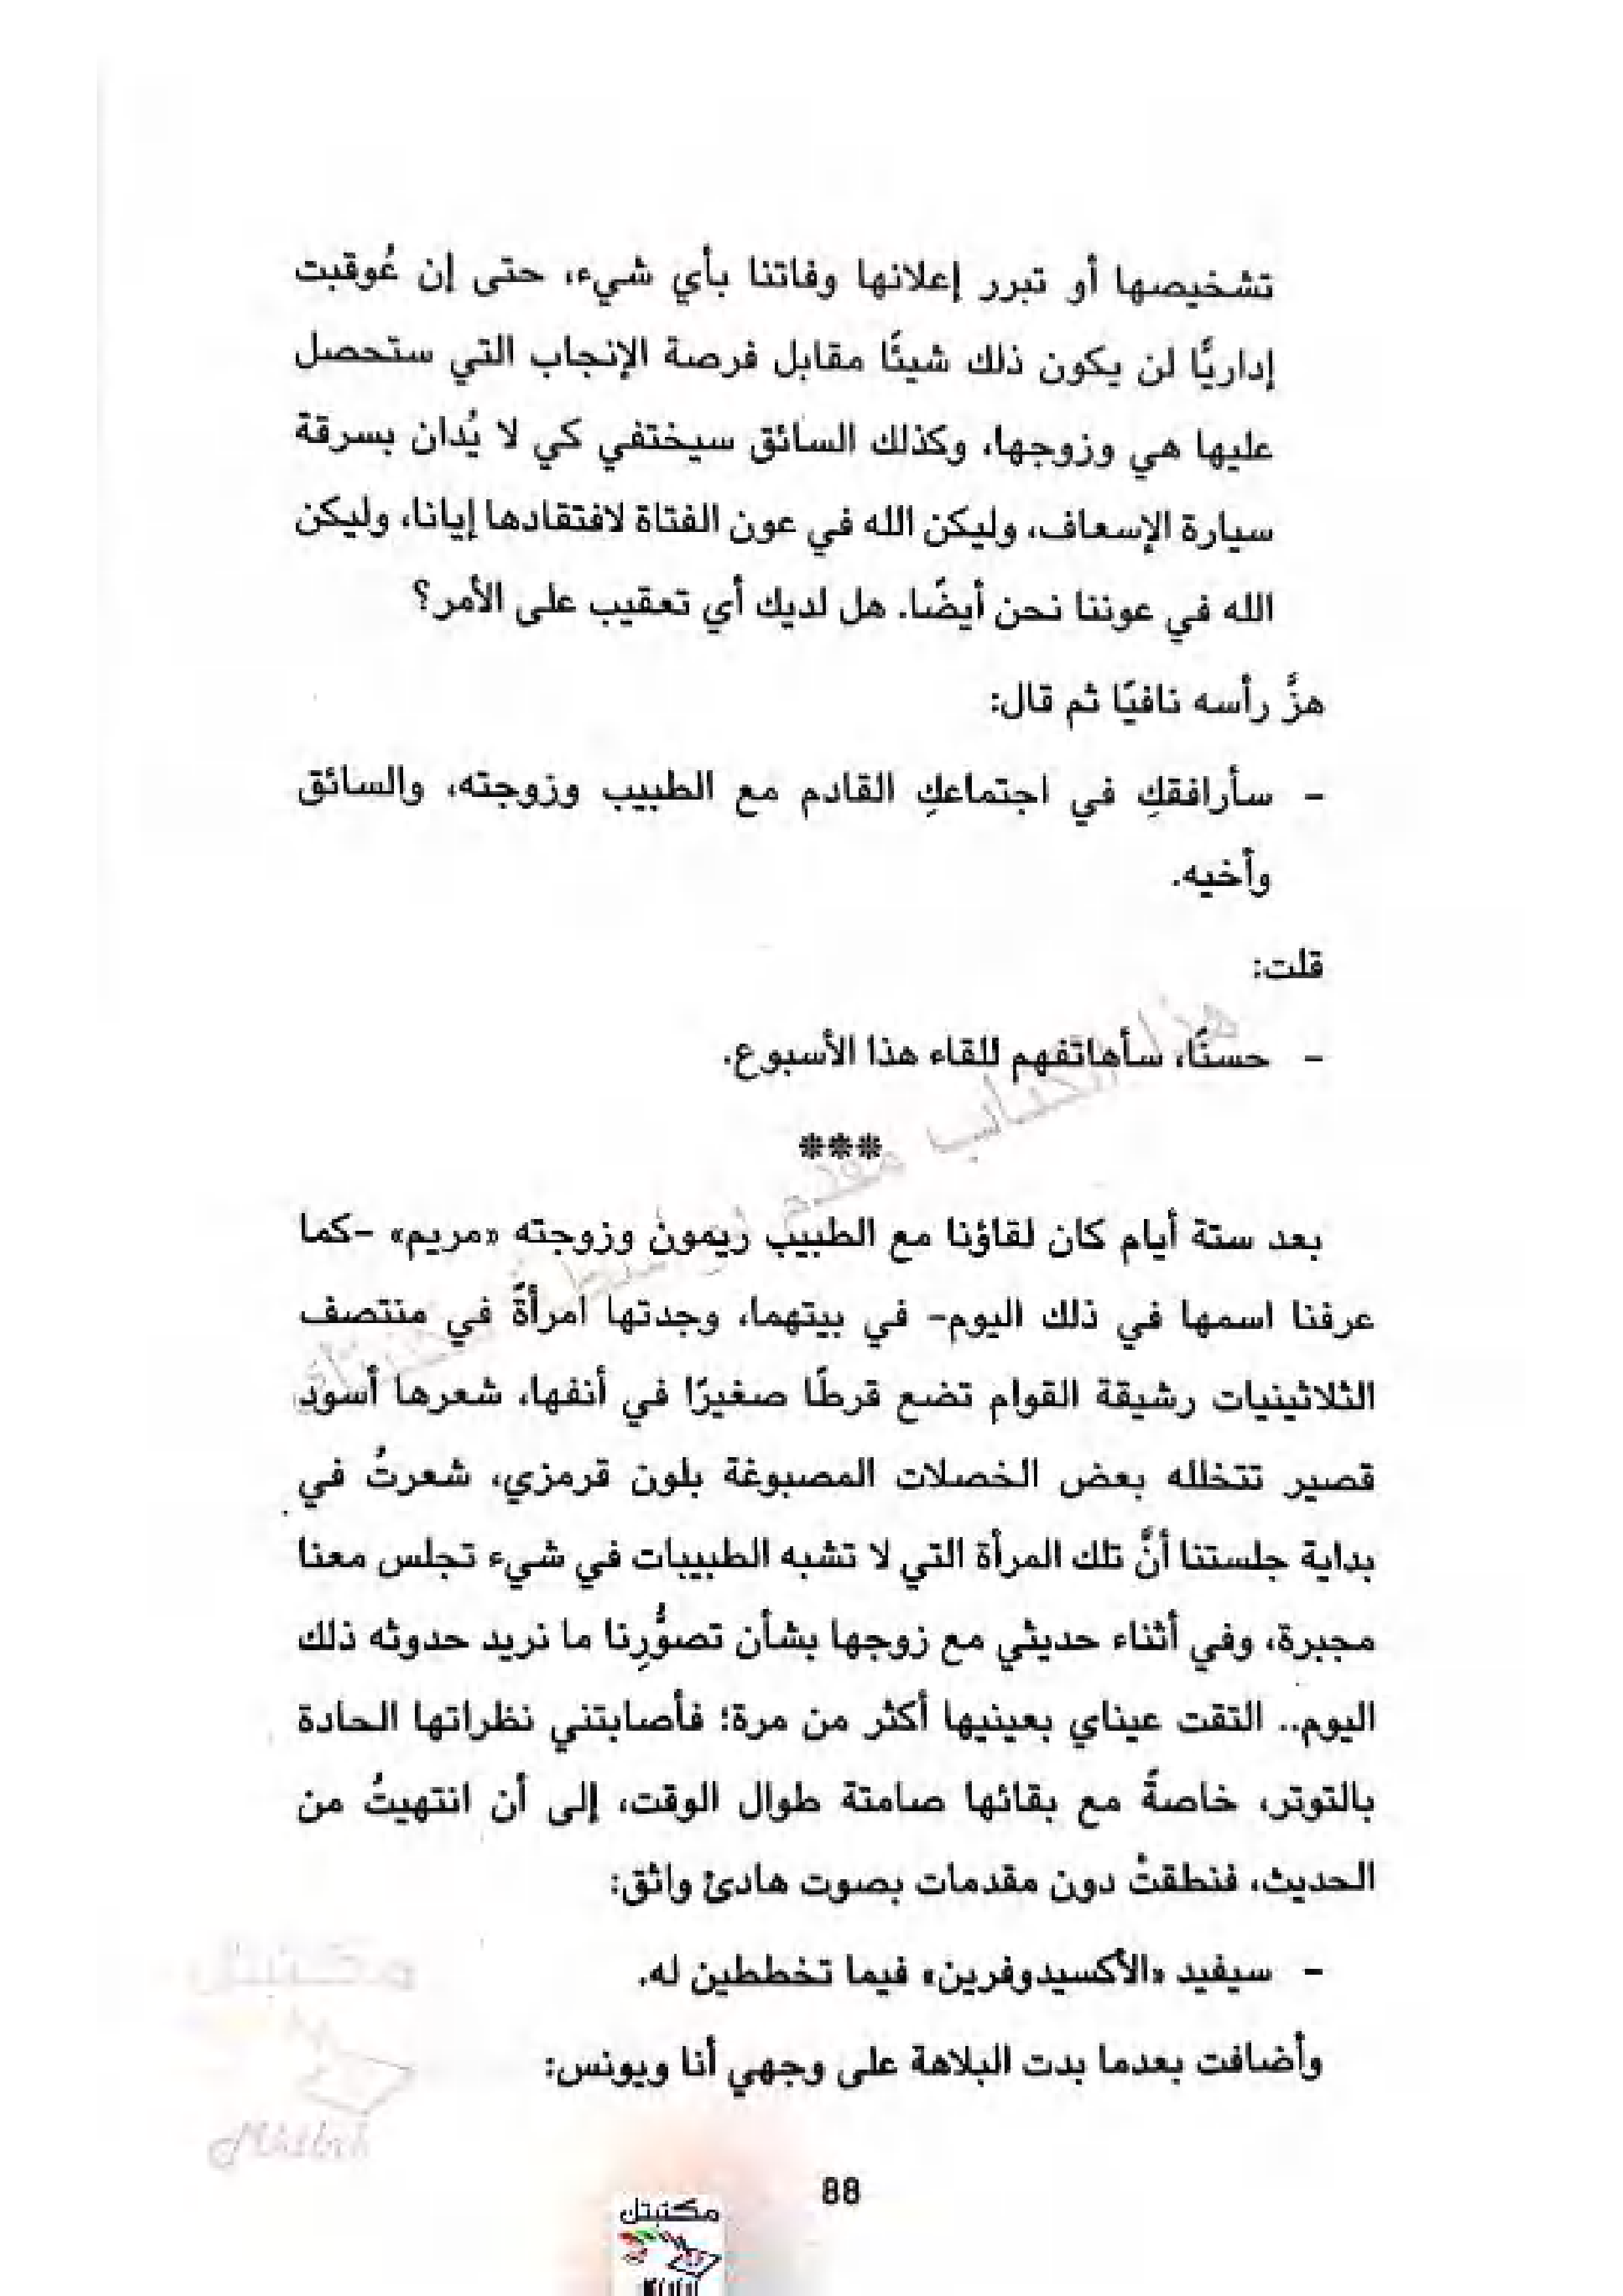 تشخيصها أو تبرر إعلانها وفاتنا بأي شيء، حتى إن عُوقبت
إداريًّا لن يكون ذلك شيئًا مقابل فرصة الإنجاب التي ستحصل
عليها هي وزوجها، وكذلك السائق سيختفي كي لا يُدان بسرقة
سيارة الإسعاف، وليكن الله في عون الفتاة لافتقادها إيانا، وليكن
الله في عوننا نحن أيضًا. هل لديك أي تعقيب على الأمر؟
هزَّ رأسه نافيًا ثم قال:
- سأرافقكِ في اجتماعكِ القادم مع الطبيب وزوجته، والسائق
وأخيه.
قلت:
- حسنًا، سأهاتفهم للقاء هذا الأسبوع.
***
بعد ستة أيام كان لقاؤنا مع الطبيب ريمون وزوجته «مريم» -كما
عرفنا اسمها في ذلك اليوم- في بيتهما، وجدتها امرأةً في منتصف
الثلاثينيات رشيقة القوام تضع قرطًا صغيرًا في أنفها، شعرها أسود
قصير تتخلله بعض الخصلات المصبوغة بلون قرمزي، شعرتُ في
بداية جلستنا أنَّ تلك المرأة التي لا تشبه الطبيبات في شيء تجلس معنا
مجبرة، وفي أثناء حديثي مع زوجها بشأن تصوُّرِنا ما نريد حدوثه ذلك
اليوم.. التقت عيناي بعينيها أكثر من مرة؛ فأصابتني نظراتها الحادة
بالتوتر، خاصةً مع بقائها صامتة طوال الوقت، إلى أن انتهيتُ من
الحديث، فنطقتْ دون مقدمات بصوت هادئ واثق:
- سيفيد «الأكسيدوفرين» فيما تخططين له.
وأضافت بعدما بدت البلاهة على وجهي أنا ويونس:
88
مكتبتل